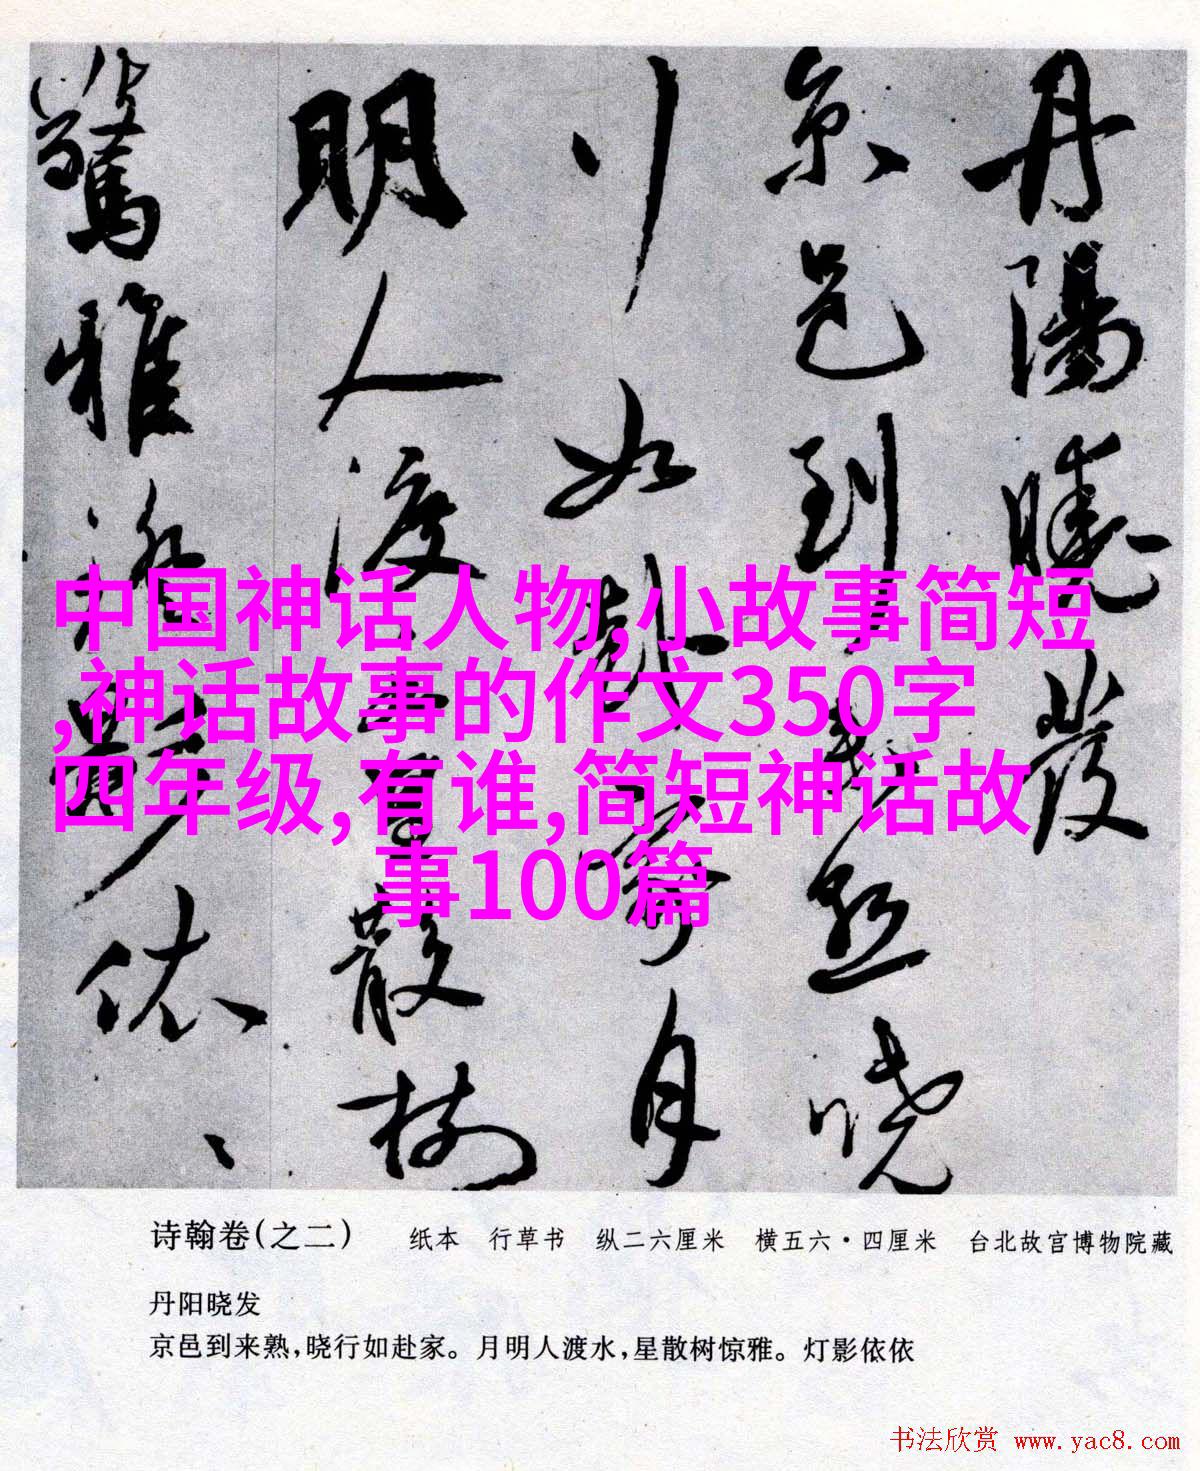 丹陽曉發
京邑到来熟曉
行如赴家月
明人渡水星散樹
驚雅燈影依〻
中国神话人物,小故事简短
,神话故事的作文350字
四年级,有谁,简短神话故
事100篇
诗翰卷(之二) 纸本 行草书 纵二六厘米 横五六·四厘米 台北故宫博物院藏
丹阳晓发
京邑到来熟,晓行如赴家。月明人渡水,星散树惊雅。灯影依依
书法欣赏 www.yac8.com